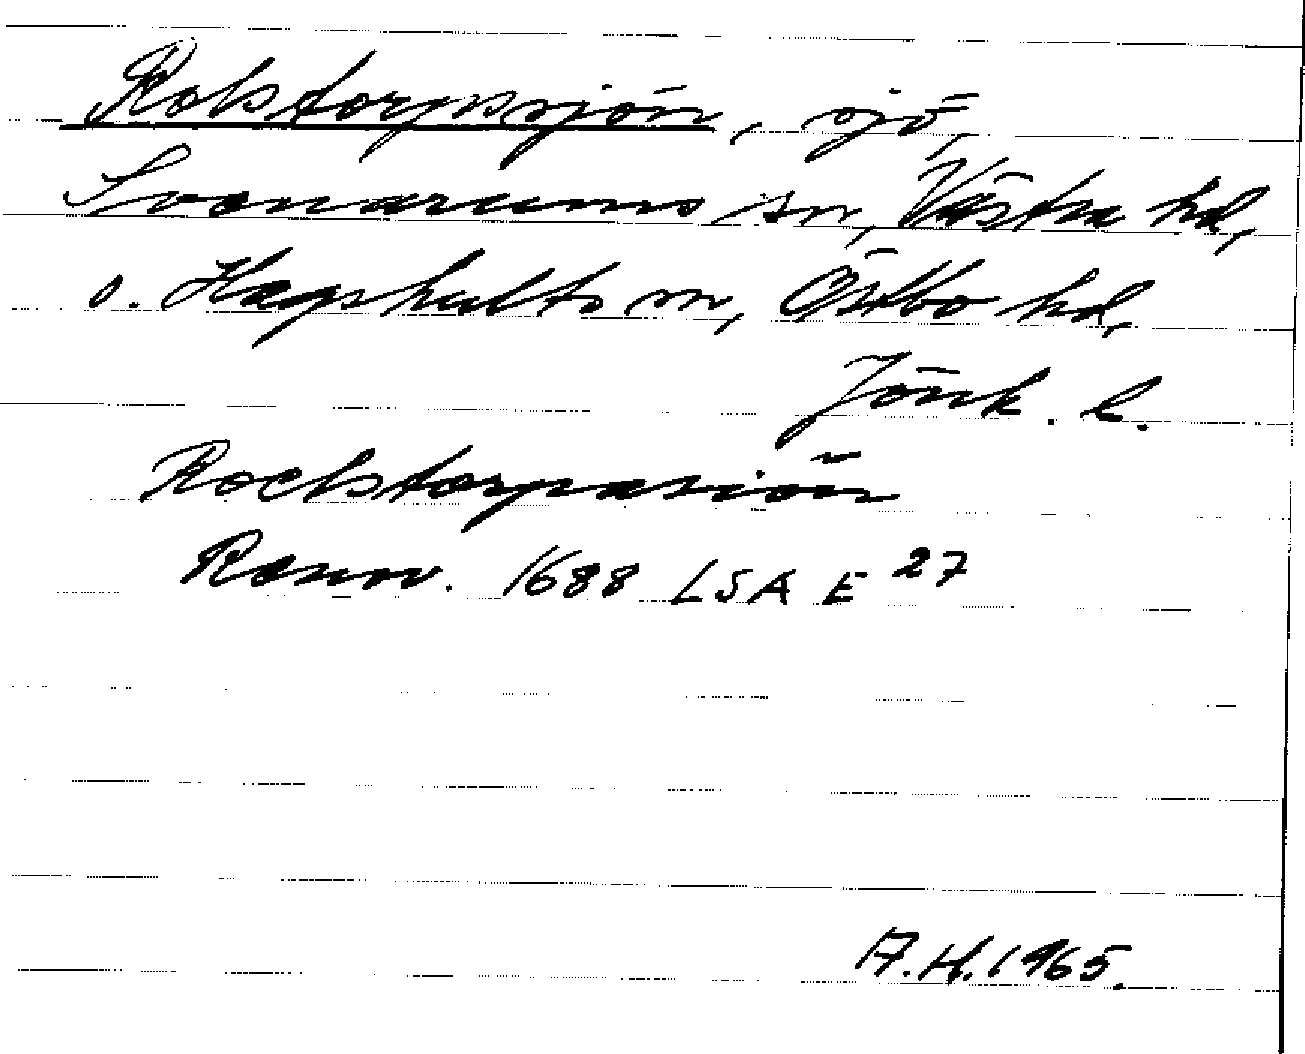 Rolstorpssjön, sjö,
Svenarums sn, Västra hd,
o. Hagshults sn, Östbo hd,
Jönk. l.
Roelstorpasiön
Rannv. 1688 LSA E 27
A.H. 1965.